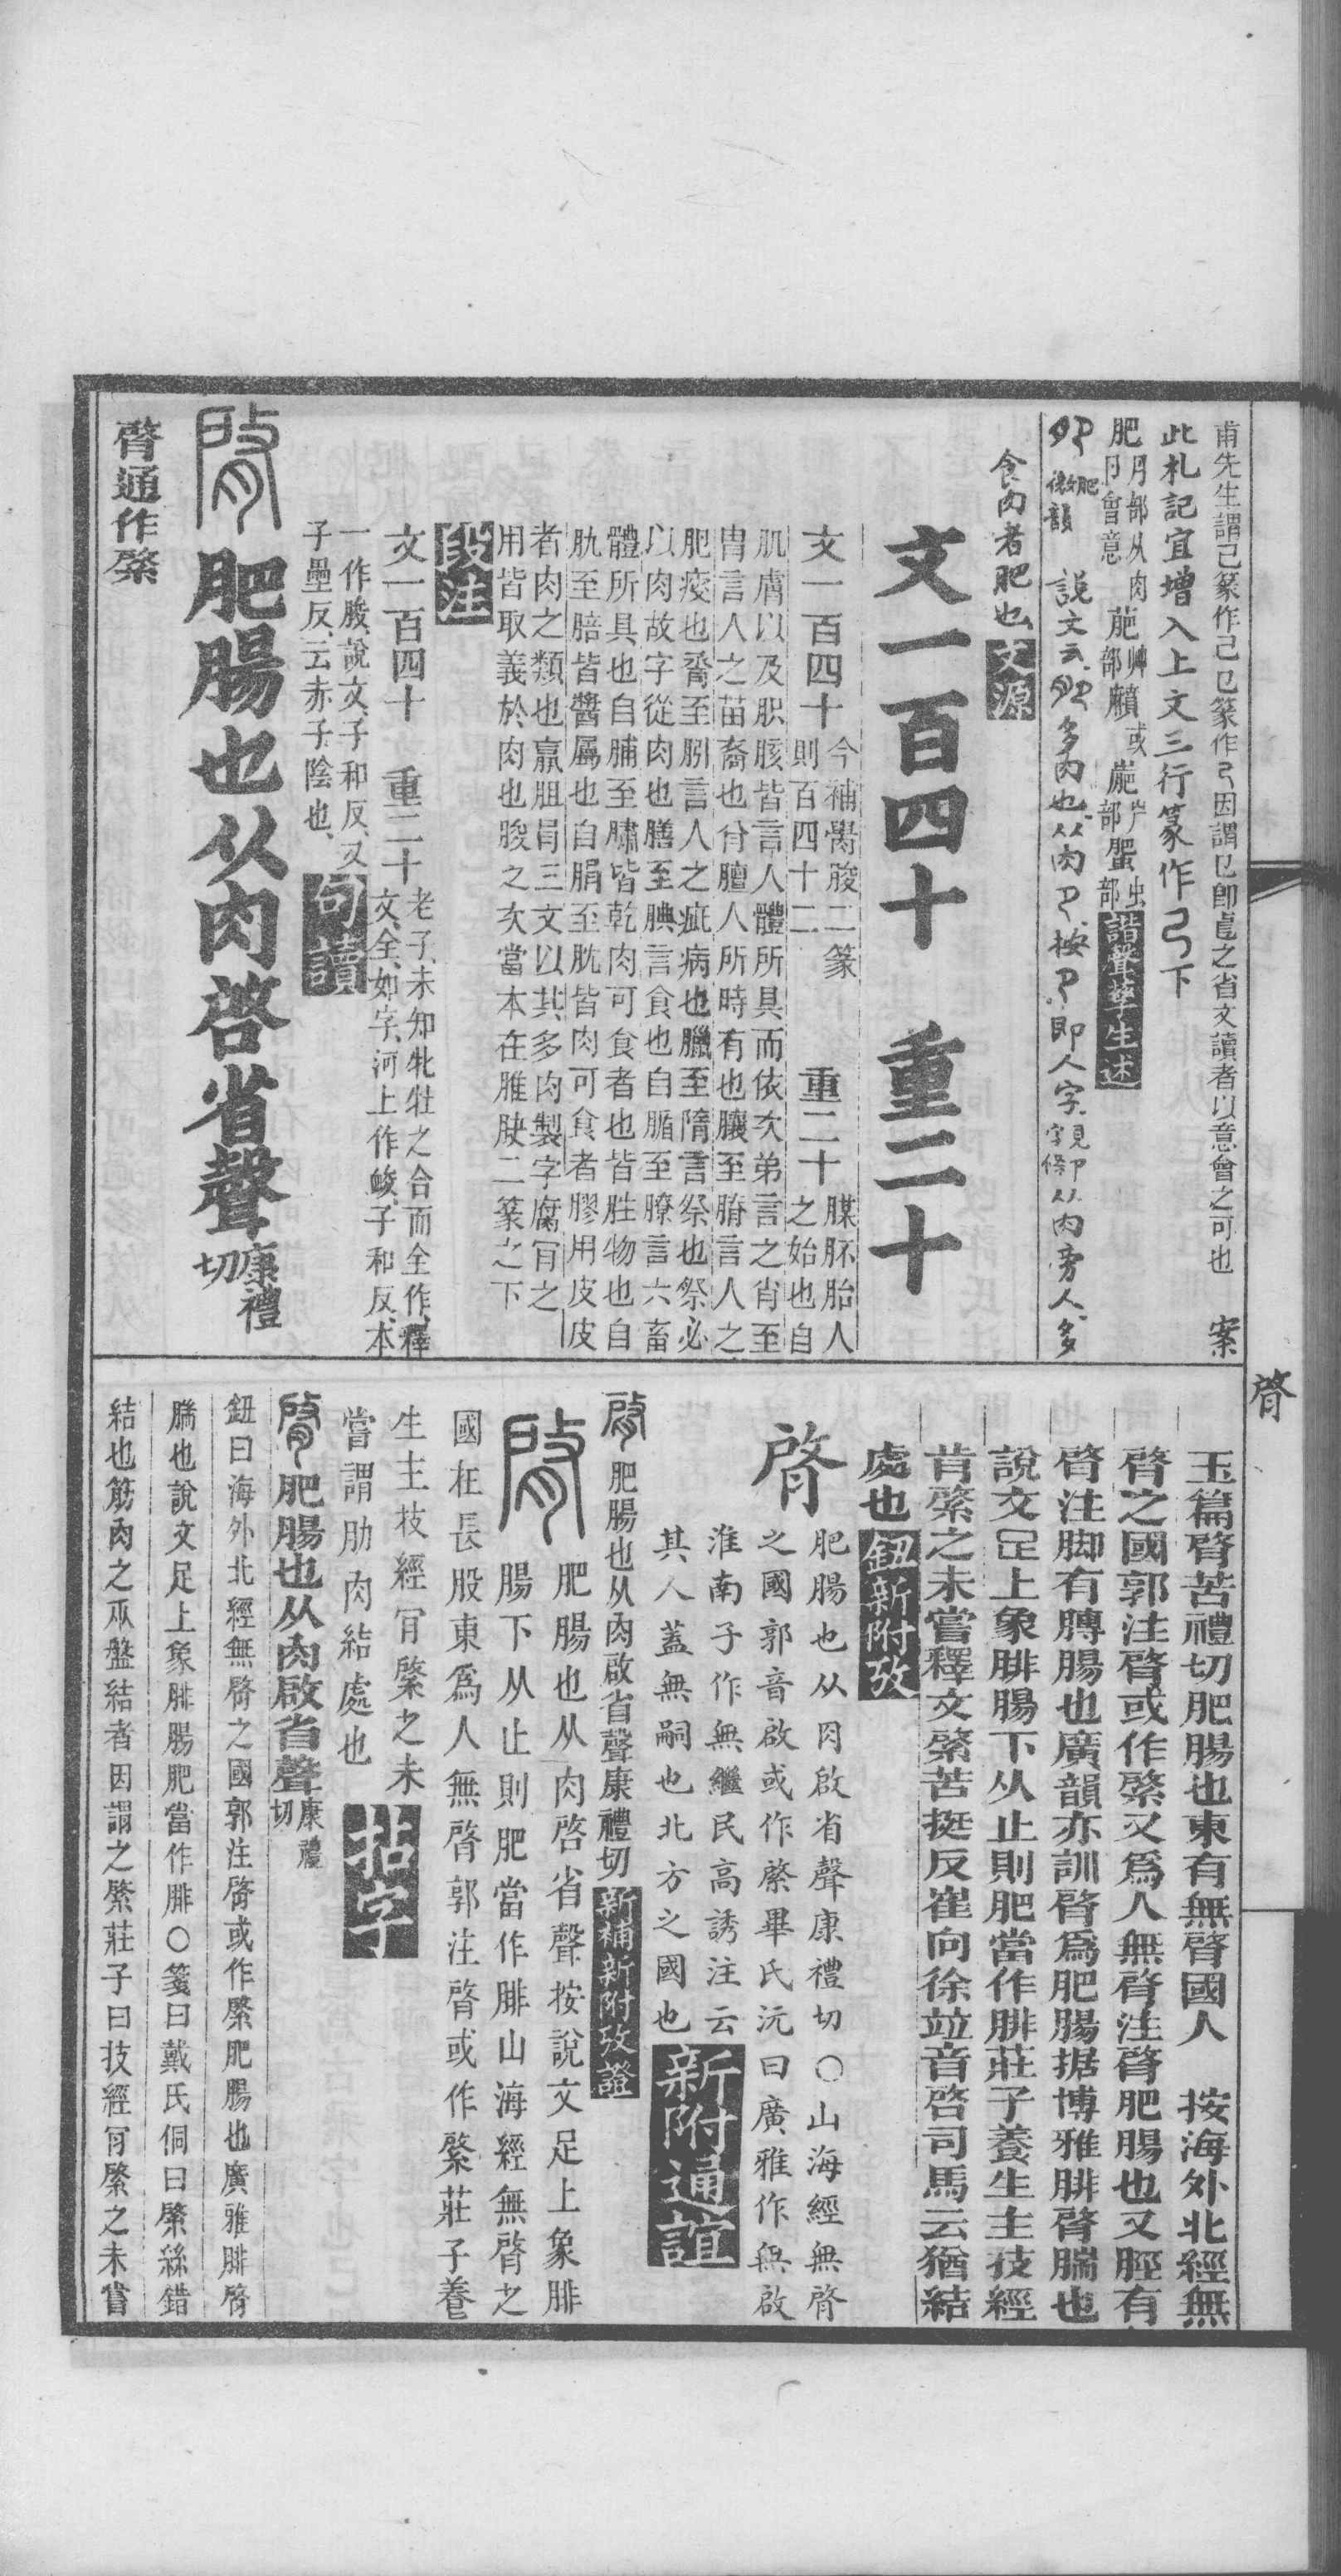 甫先生謂己篆作己巳篆作㔾因謂㔾卽㿝之省文讀者以意會之可也　案
此札記宜增入上文三行篆作弓下
肥 部从肉會意 萉艸部 或 部蜰虫部 諧聲孳生述
肥微韻 說文云肥多肉也从肉卪按卪卽人字見卬字條从肉旁人多
食肉者肥也 文源
文一百四十　重二十
文一百四十 今補胬朘二篆則百四十二　重二十 腜胚胎人之始也自
肌膚以及胑胲皆言人體所具而依次弟言之肖至
冑言人之苗裔也佾膻人所時有也膿至膌言人之
肥瘦也脀至胗言人之疵病也臘至隋言祭也祭必
以肉故字從肉也膳至腆言食也自腯至膫言六畜
體所具也自脯至膴皆乾肉可食者也皆胜物也自
肍至腤皆醬屬也自脶至肬皆肉可食者膠用皮皮
者肉之類也羸胆肙三文以其多肉製字腐肎之
用皆取義於肉也朘之次當本在脽肤二篆之下
段注
文一百四十　重二十 老子未知牝牡之合而全作釋文全如字河上作峻子和反本
一作朘說文子和反又子壘反云赤子陰也 句讀
肥腸也从肉啓省聲康禮切
膂通作綮
玉篇䏿苦禮切肥腸也東有無䏿國人　按海外北經無
䏿之國郭注䏿或作綮又爲人無䏿注䏿肥腸也又脛有
䏿注脚有膞腸也廣韻亦訓䏿爲肥腸据博雅腓䏿腨也
說文𤴓上象腓腸下从止則肥當作腓莊子養生主技經
肯綮之未嘗釋文綮苦挺反崔向徐竝音啓司馬云猶結
處也 鈕新附攷
䏿 肥腸也从肉啟省聲康禮切○山海經無䏿
之國郭音啟或作綮畢氏沅曰廣雅作無啟
淮南子作無繼民高誘注云
其人蓋無嗣也北方之國也 新附通誼
䏿肥腸也从肉啟省聲康禮切 新補新附攷證
䏿 肥腸也从肉啓省聲按說文足上象腓
腸下从止則肥當作腓山海經無䏿之
國在長股東爲人無䏿郭注䏿或作綮莊子養
生主技經肎綮之未
嘗謂肋肉結處也 拈字
䏿肥腸也从肉啟省聲康禮切
鈕曰海外北經無䏿之國郭注䏿或作綮肥腸也廣雅腓䏿
腨也說文足上象腓腸肥當作腓○箋曰戴氏侗曰綮絲錯
結也筋肉之㕚盤結者因謂之綮莊子曰技經肎綮之未嘗
䏿